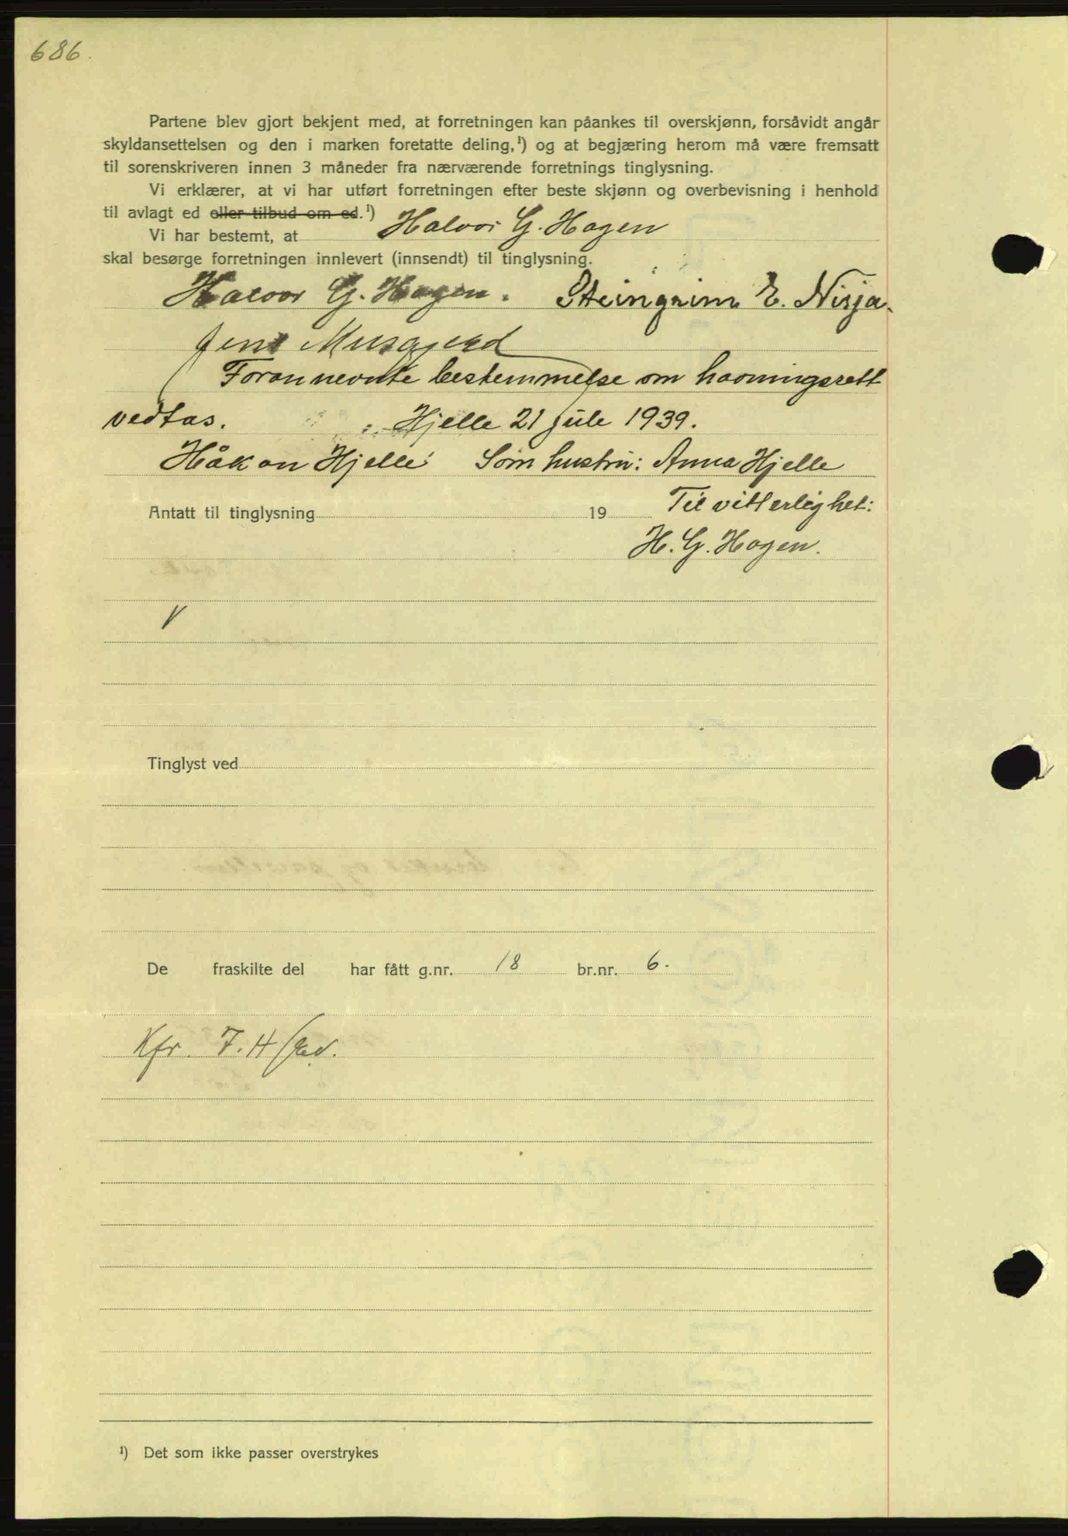 686.
Partene blev gjort bekjent med, at forretningen kan påankes til overskjønn, forsåvidt angår
skyldansettelsen og den i marken foretatte deling,¹) og at begjæring herom må være fremsatt
til sorenskriveren innen 3 måneder fra nærværende forretnings tinglysning.
Vi erklærer, at vi har utført forretningen efter beste skjønn og overbevisning i henhold
til avlagt ed eller tilbud om ed.¹)
Vi har bestemt, at Halvor G. Hagen
skal besørge forretningen innlevert (innsendt) til tinglysning.
Halvor G. Hagen. Steingrim E. Nisja.
Jens
Forannevnte bestemmelse om havningsrett
vedtas. Hjelle 21 jule 1939.
Håkon Hjelle Som hustru: Anna Hjelle
Antatt til tinglysning 19 Til vitterlighet:
H. G. Hagen.
V
Tinglyst ved
De fraskilte del har fått g.nr. 18 br.nr. 6.
Kfr. F. H
¹) Det som ikke passer overstrykes